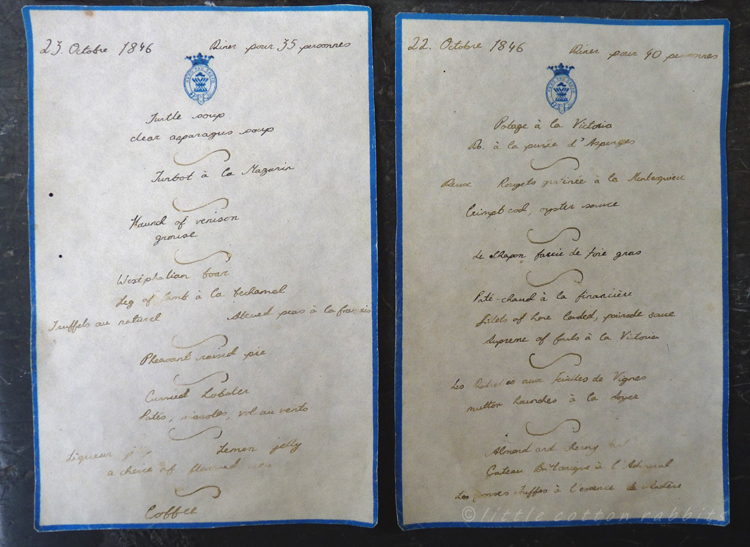 23. Octobre 1846 Diner pour 35 personnes
Turtle soup
clear asparagus soup
Turbot à la Mazarin
Haunch of venison
grouse
Westphalian boar
Leg of lamb à la bechamel
Truffels au naturel Stewed peas à la français
Pheasant raised pie
Curried Lobster
Patés, rissoles, vol au vents
Liqueur Lemon jelly
a choice of
Coffee
22. Octobre 1846 Diner pour 40 personnes
Potage à la Victoria
Do. à la purée d'Asperges
Deux Rougets à la
Crimpt cod, oyster sauce
de Shapon farcie de foie gras
Paté-chaud à la financière
Filets of hare larded, poivrade sauce
Supreme of fouls à la Victoria
Les aux Feuilles de Vignes
mutton haunches à la Soyer
Almond and cherry
Gateau à l'Admiral
Les truffes à l'essence de Madère
© little cotton rabbits